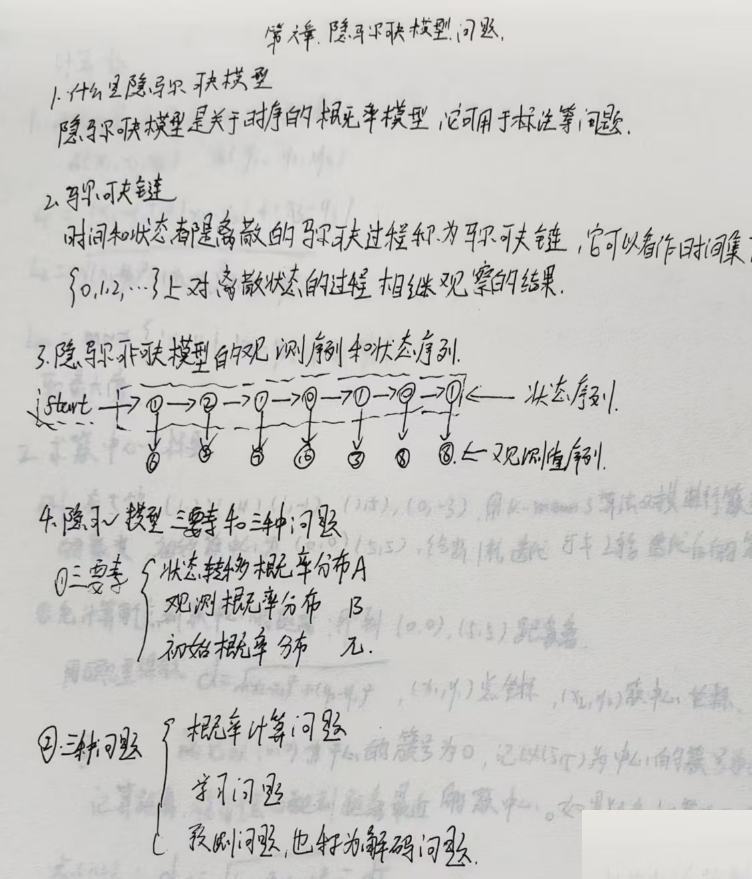 第六章.隐马尔可夫模型问题.
1.什么是隐马尔可夫模型
隐马尔可夫模型是关于时序的概率模型,它可用于标注等问题.
2.马尔可夫链
时间和状态都是离散的马尔可夫过程称为马尔可夫链,它可以看作时间集T
{0,1,2,…}上对离散状态的过程相继观察的结果.
3.隐马尔可夫模型的观测序列和状态序列.
start → ① → ② → ① → → ① → → ① ← 状态序列.
⑥ ③ ⑧ ← 观测值序列.
4.隐马模型三要素和三种问题
①三要素 { 状态转移概率分布A
观测概率分布 B
初始概率分布 π.
②三种问题 { 概率计算问题
学习问题
预测问题,也称为解码问题.